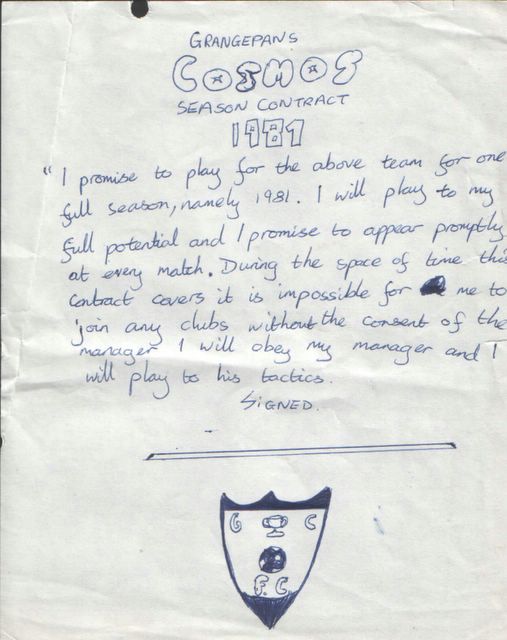 GRANGEPANS
COSMOS
SEASON CONTRACT
1981
"I promise to play for the above team for one
full season, namely 1981. I will play to my
full potential and I promise to appear promptly
at every match. During the space of time this
contract covers it is impossible for me to
join any clubs without the consent of the
manager I will obey my manager and I
will play to his tactics.
SIGNED.
G C
F.C.